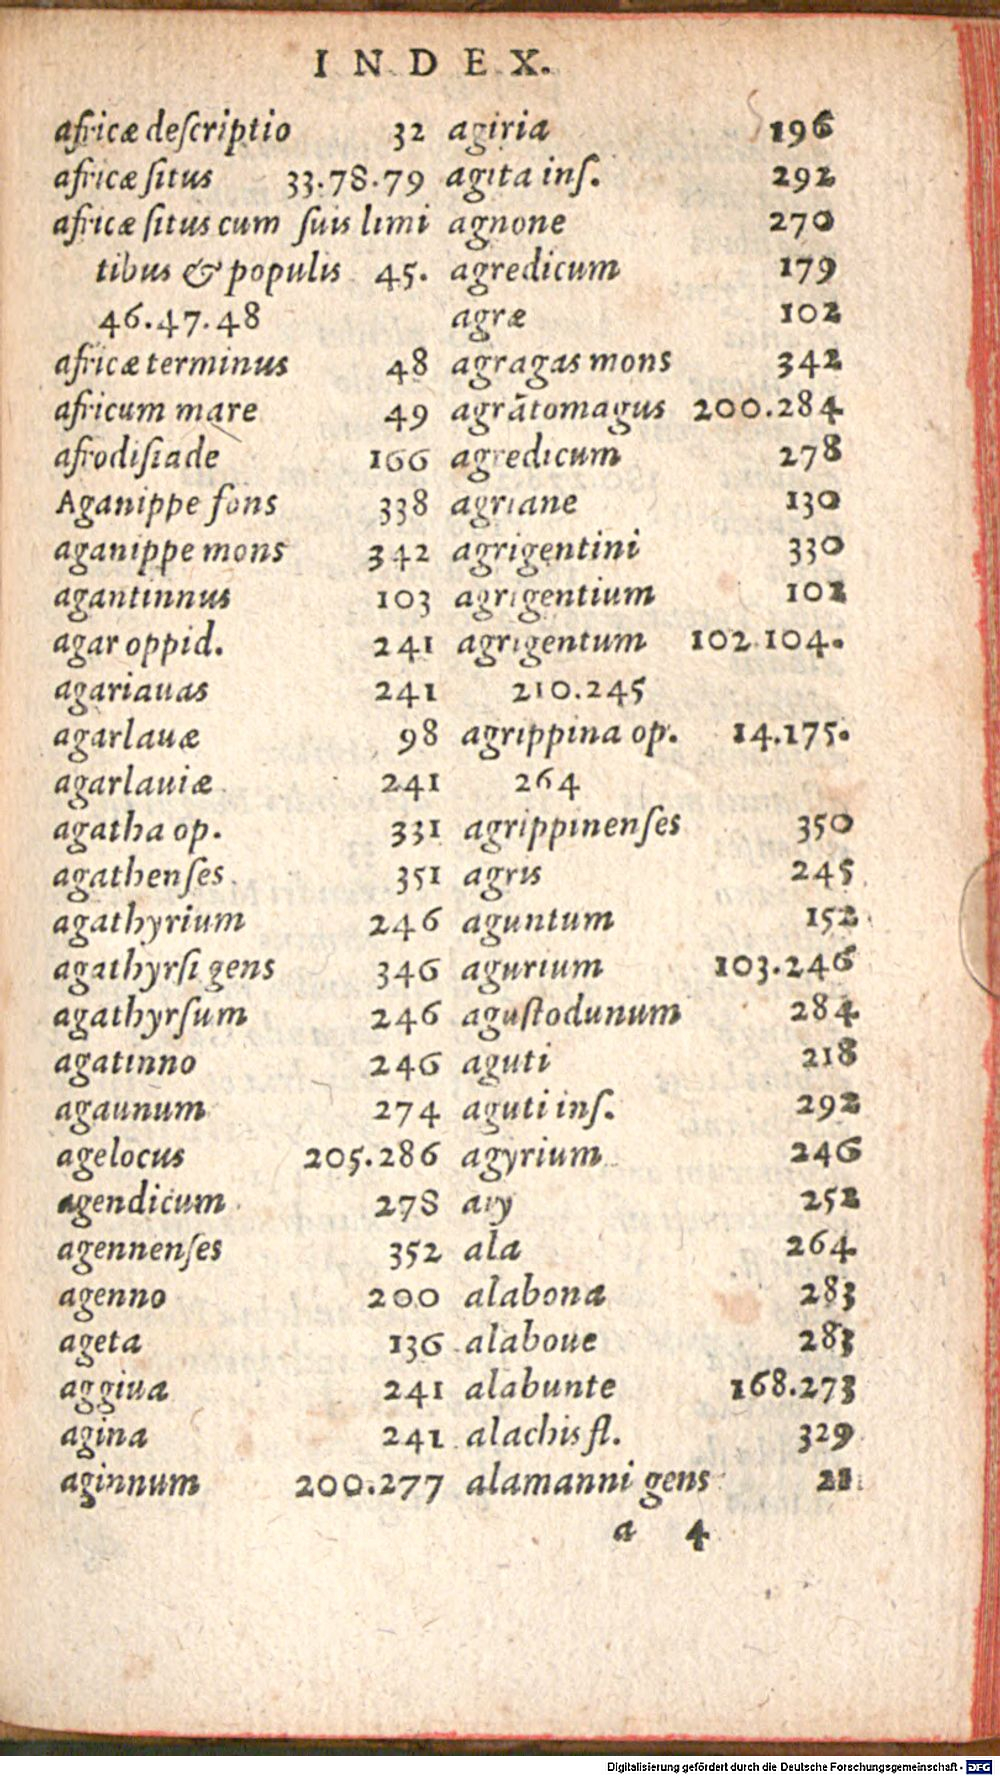 INDEX.
africæ deſcriptio 32
africæ ſitus 33.78.79
africæ ſitus cum ſuis limi
tibus & populis 45.
46.47.48
africæ terminus 48
africum mare 49
afrodiſiade 166
Aganippe fons 338
aganippe mons 342
agantinnus 103
agar oppid. 241
agariauas 241
agarlauæ 98
agarlauiæ 241
agatha op. 331
agathenſes 351
agathyrium 246
agathyrſi gens 346
agathyrſum 246
agatinno 246
agaunum 274
agelocus 205.286
agendicum 278
agennenſes 352
agenno 200
ageta 136
aggiua 241
agina 241
aginnum 200.277
agiria 196
agita inſ. 292
agnone 270
agredicum 179
agræ 102
agragas mons 342
agrãtomagus 200.284
agredicum 278
agriane 130
agrigentini 330
agrigentium 102
agrigentum 102.104.
210.245
agrippina op. 14.175.
264
agrippinenſes 350
agris 245
aguntum 152
agurium 103.246
aguſtodunum 284
aguti 218
aguti inſ. 292
agyrium 246
aiy 252
ala 264
alabona 283
alaboue 283
alabunte 168.273
alachis fl. 329
alamanni gens
a 4
Digitalisierung gefördert durch die Deutsche Forschungsgemeinschaft - DFG